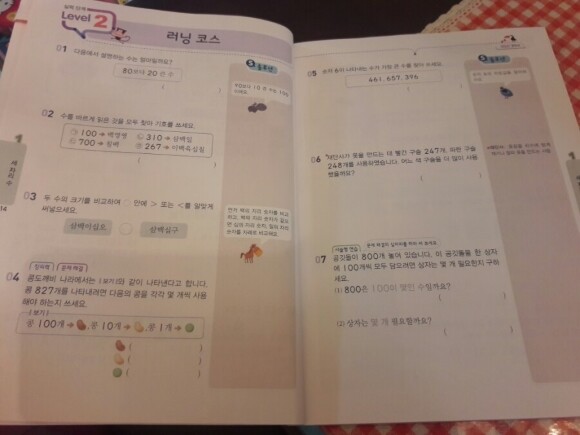 실력 단계
Level 2
러닝 코스
01 다음에서 설명하는 수는 얼마일까요?
80보다 20 큰 수
( )
02 수를 바르게 읽은 것을 모두 찾아 기호를 쓰세요.
㉠ 100 → 백영영 ㉡ 310 → 삼백십
㉢ 700 → 칠백 ㉣ 267 → 이백육십칠
( )
03 두 수의 크기를 비교하여 ○ 안에 > 또는 <를 알맞게
써넣으세요.
삼백이십오 ○ 삼백십구
먼저 백의 자리 숫자를 비교
04
문제 해결
콩도깨비 나라에서는 |보기|와 같이 나타낸다고 합니다.
콩 827개를 나타내려면 다음의 콩을 각각 몇 개씩 사용
해야 하는지 쓰세요.
보기
콩 100개 → , 콩 10개 → , 콩 1개 →
( )
( )
( )
1
세 자리 수
14
05 숫자 6이 나타내는 수가 가장 큰 수를 찾아 쓰세요.
461, 657, 396
( )
06
248개를 사용하였습니다. 어느 색 구슬을 더 많이 사용
했을까요?
( )
07
서술형 연습
공깃돌이 800개 놓여 있습니다. 이 공깃돌을 한 상자
에 100개씩 모두 담으려면 상자는 몇 개 필요한지 구하
세요.
(1) 800은 100이 몇인 수일까요?
( )
(2) 상자는 몇 개 필요할까요?
( )
1